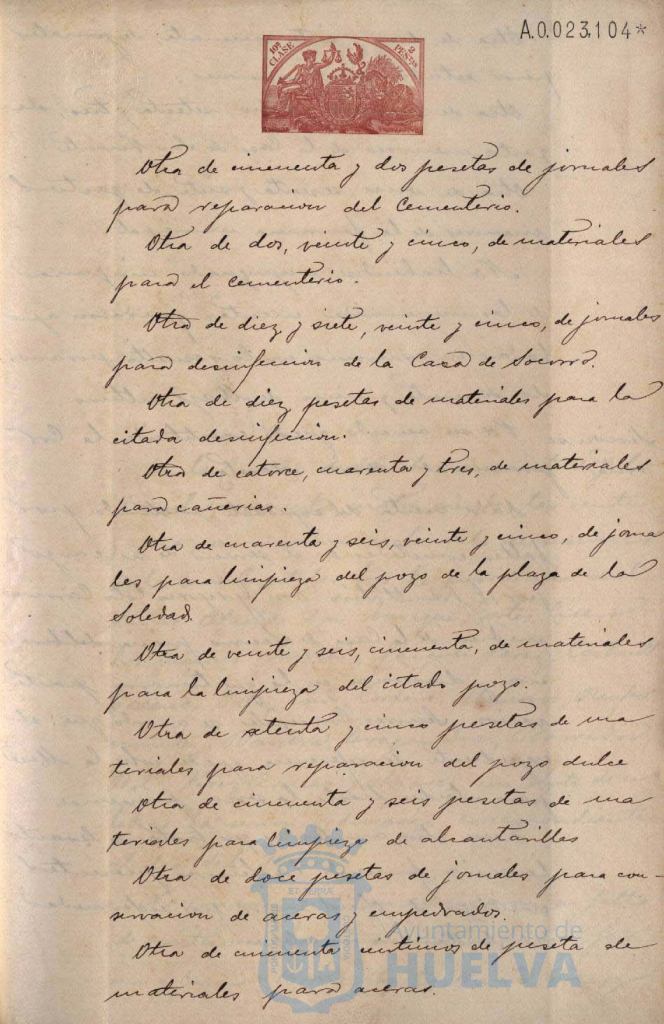 A.0.023,104*
10ª CLASE 2 PESETAS
Otra de cincuenta y dos pesetas de jornales
para reparacion del Cementerio.
Otra de dos, veinte y cinco, de materiales
para el cementerio.
Otra de diez y siete, veinte y cinco, de jornales
para desinfeccion de la Casa de Socorro.
Otra de diez pesetas de materiales para la
citada desinfeccion.
Otra de catorce, cuarenta y tres, de materiales
para cañerias.
Otra de cuarenta y seis, veinte y cinco, de jorna
les para limpieza del pozo de la plaza de la
Soledad.
Otra de veinte y seis, cincuenta, de materiales
para la limpieza del citado pozo.
Otra de setenta y cinco pesetas de ma
teriales para reparacion del pozo dulce
Otra de cincuenta y seis pesetas de ma
teriales para limpieza de alcantarillas
Otra de doce pesetas de jornales para con-
servacion de aceras y empedrados.
Otra de cincuenta centimos de peseta de
materiales para aceras.
Ayuntamiento de
HUELVA